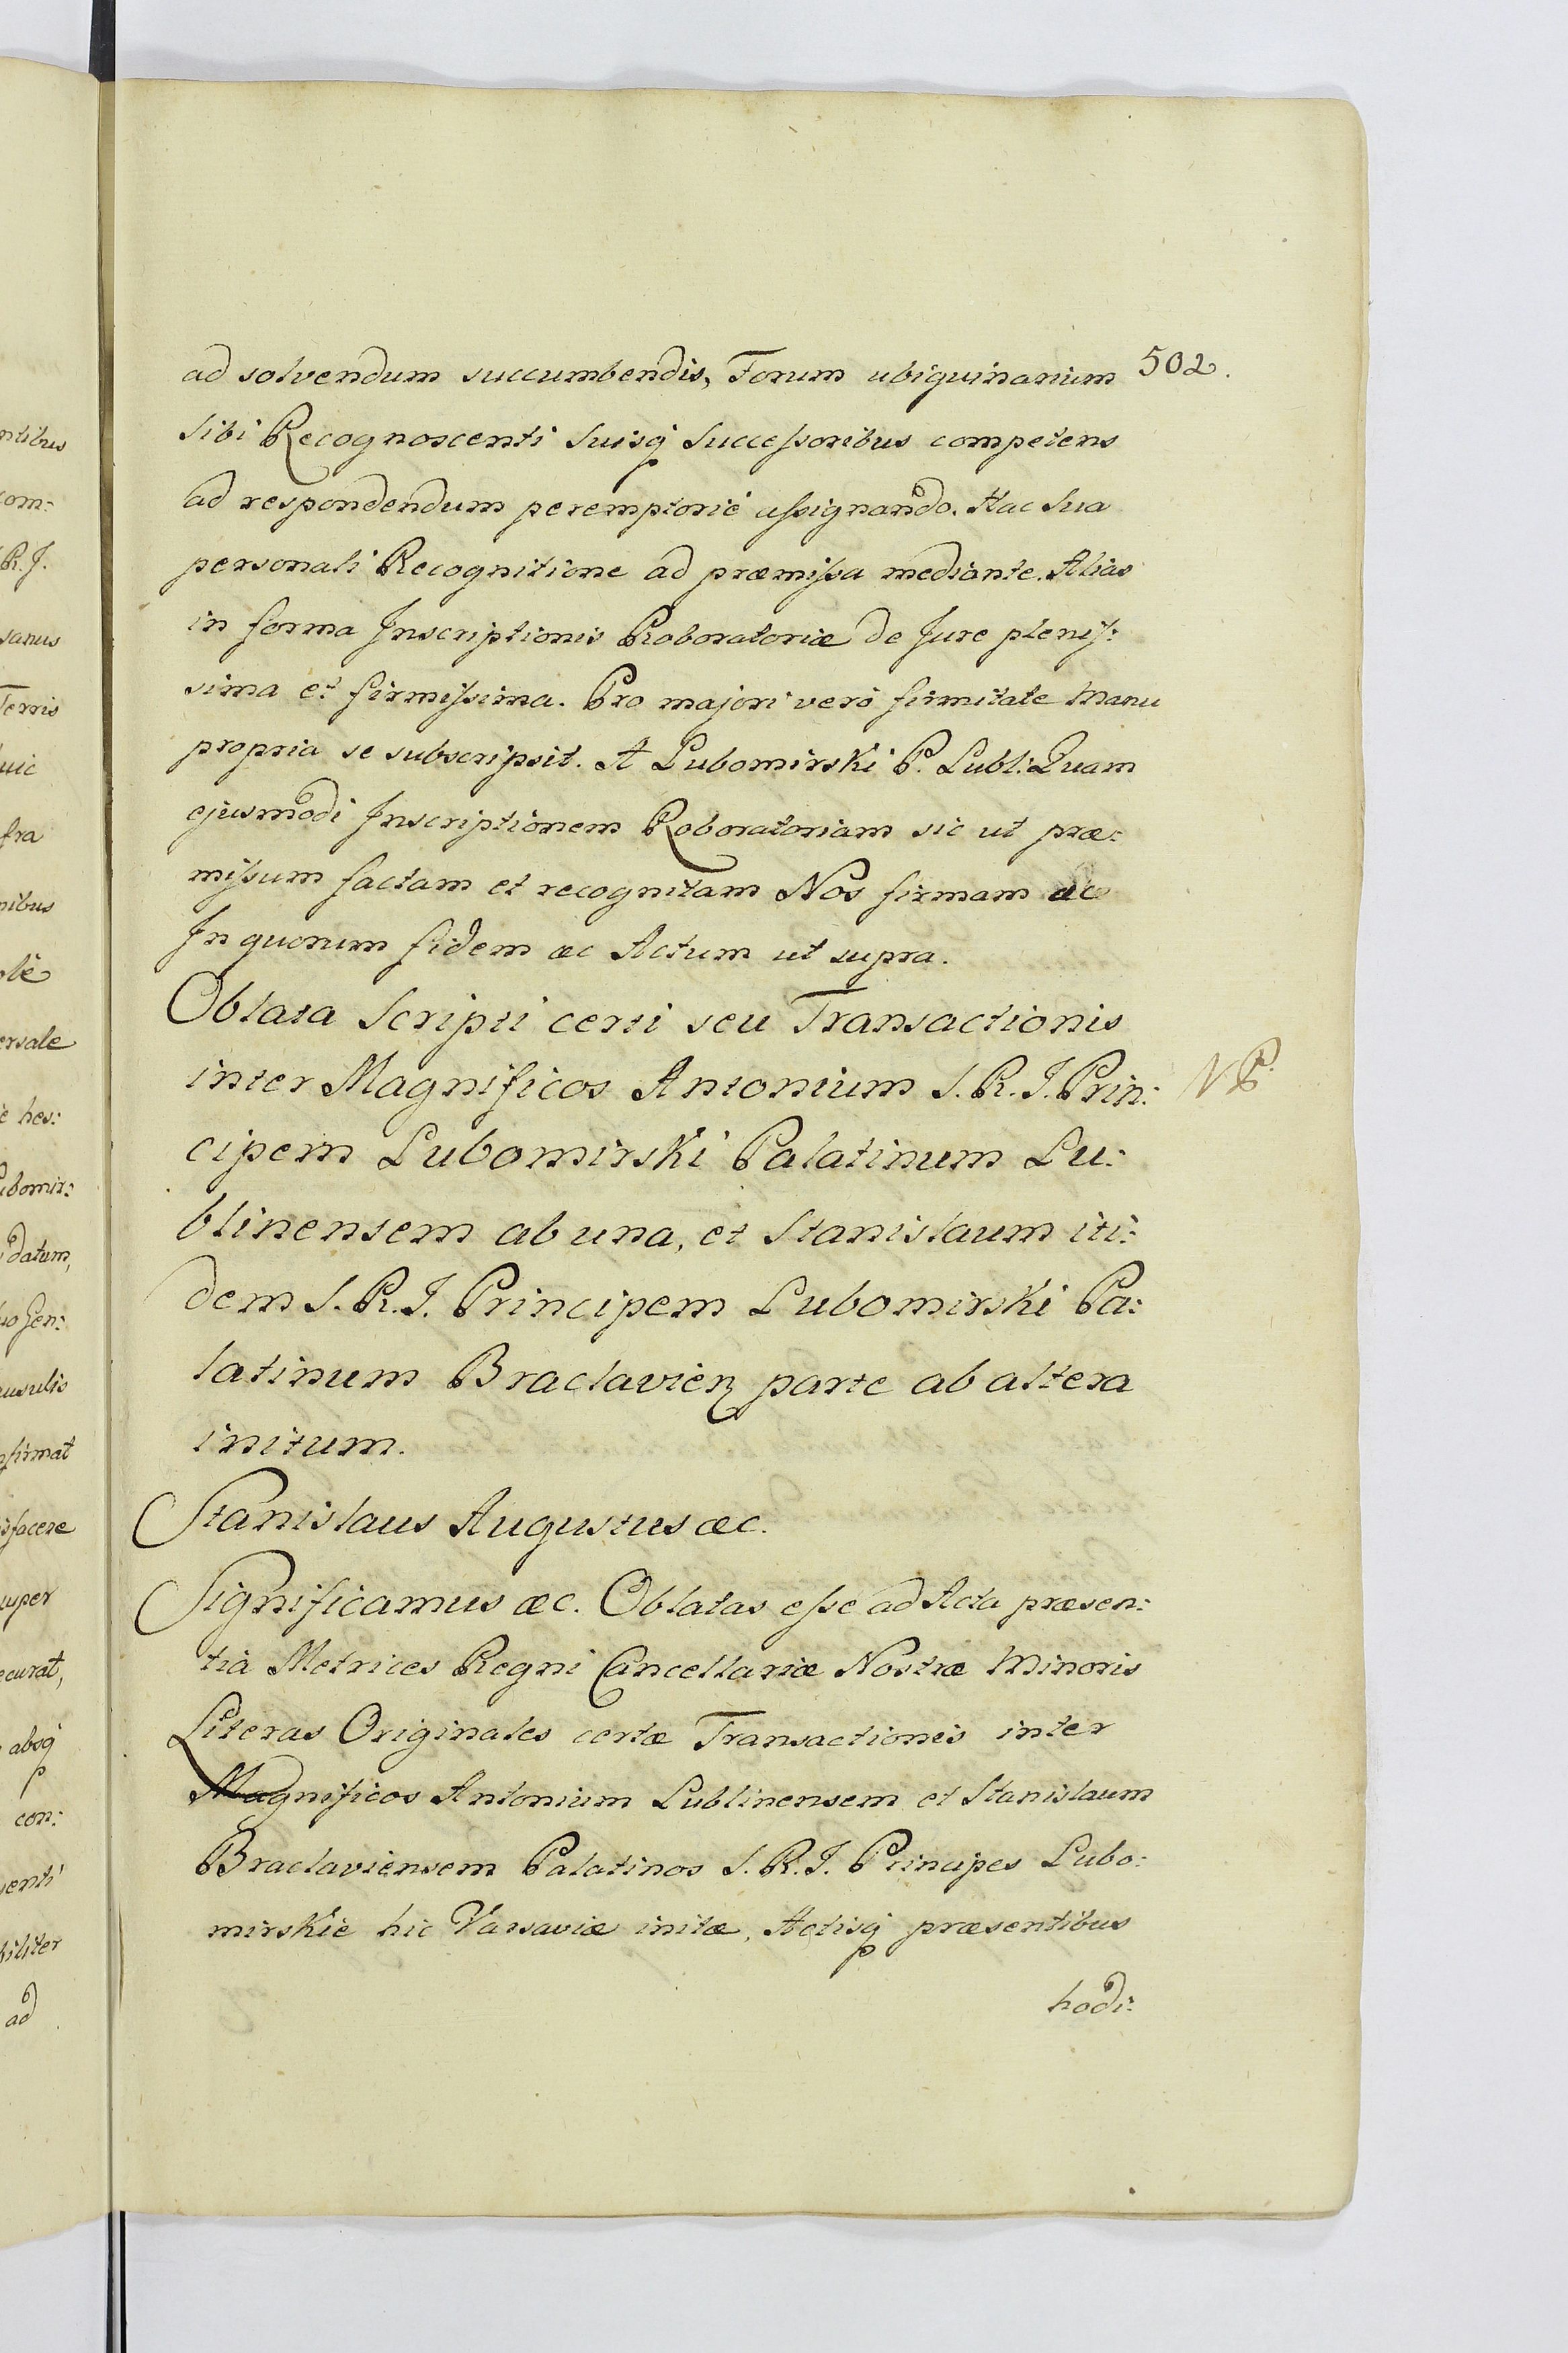 502.
ad solvendum succumbendis, Forum ubiquinarium
sibi Recognoscenti suisq́ Succeſsoribus competens
ad respondendum peremptoriè aſsignando. Hac sua
personali Recognitione ad præmiſsa mediante. Alias
in forma Inscriptionis Roboratoriæ de Jure pleniſ:
sima et firmiſsima. Pro majori verò firmitate Manu
propria se subscripsit. A Lubomirski P. Lubl: Quam
ejusmodi Inscriptionem Roboratoriam sic ut præ:
miſsum factam et recognitam Nos firmam æc
In quorum fidem æc Actum ut supra.
Oblata Scripti certi seu Transactionis
inter Magnificos Antonium S. R. I. Prin:
NB
cipem Lubomirski Palatinum Lu:
blinensem ab una, et Stanislaum iti:
dem S. R. I. Principem Lubomirski Pa:
latinum Braclavieñ parte ab altera
initum.
Stanislaus Augustus æc.
Significamus æc. Oblatas eſse ad Acta præsen:
tia Metrices Regni Cancellariæ Nostræ Minoris
Literas Originales certæ Transactionis inter
Magnificos Antonium Lublinensem et Stanislaum
Braclaviensem Palatinos S. R. I. Principes Lubo:
mirskie hic Varsaviæ initæ, Actisq́ præsentibus
hodi:
ntibus
com:
R. J.
sanus
Terris
huic
fra
nibus
ole
ersale
è hes:
ubomir:
datum,
uo Gen:
ausulis
nfirmat
isfacere
super
ecurat,
absq́
con:
venti
biliter
ad